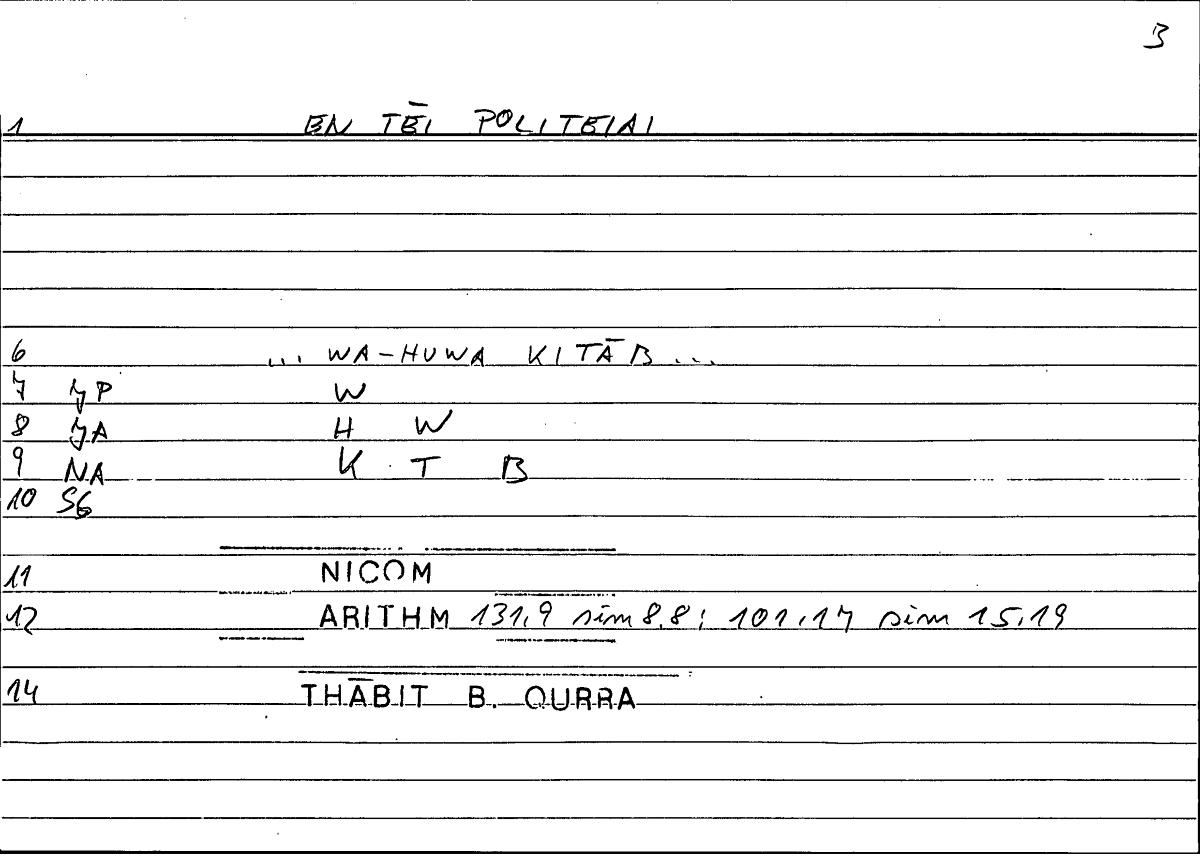 3
1 EN TĒI POLITEIAI
6 ... WA-HUWA KITĀB ...
7 JP W
8 JA H W
9 NA K T B
10 SG
11 NICOM
12 ARITHM 131,9 sim 8,8; 101,17 sim 15,19
14 THĀBIT B. QURRA